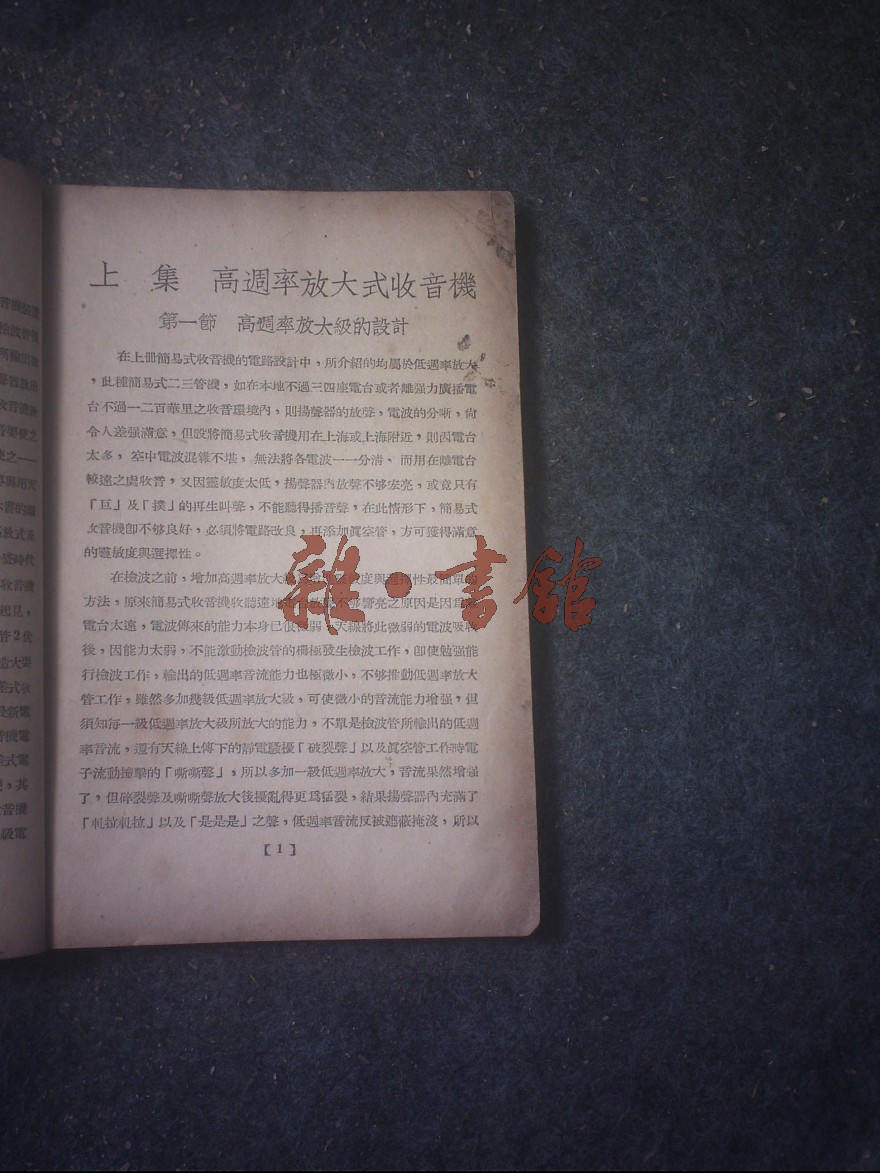 上 集 高週率放大式收音機
第一節 高週率放大級的設計
在上冊簡易式收音機的電路設計中，所介紹的均屬於低週率放大
，此種簡易式二三管機，如在本地不過三四座電台或者離强力廣播電
台不過一二百華里之收音環境內，則揚聲器的放聲，電波的分晰，尙
令人差强滿意，但設將簡易式收音機用在上海或上海附近，則因電台
太多，空中電波混雜不堪，無法將各電波一一分清、而用在離電台
較遠之處收音，又因靈敏度太低，揚聲器內放聲不够宏亮，或竟只有
「巨」及「撲」的再生叫聲，不能聽得播音聲，在此情形下，簡易式
收音機卽不够良好，必須將電路改良，再添加眞空管，方可獲得滿意
的靈敏度與選擇性。
在檢波之前，增加高週率放大級 度與選擇性最簡單的
方法，原來簡易式收音機收聽遠地電台放聲不够響亮之原因是因爲
電台太遠，電波傳來的能力本身已很微弱，天線將此微弱的電波吸收
後，因能力太弱，不能激動檢波管的柵極發生檢波工作，卽使勉强能
行檢波工作，輸出的低週率音流能力也極微小，不够推動低週率放大
管工作，雖然多加幾級低週率放大級，可使微小的音流能力增强，但
須知每一級低週率放大級所放大的能力，不單是檢波管所輸出的低週
率音流，還有天線上傳下的靜電騷擾「破裂聲」以及眞空管工作時電
子流動撞擊的「嘶嘶聲」，所以多加一級低週率放大，音流果然增强
了，但碎裂聲及嘶嘶聲放大後擾亂得更爲猛裂，結果揚聲器內充滿了
「軋拉軋拉」以及「是是是」之聲，低週率音流反被遮蔽掩沒，所以
【1】
雜·書館